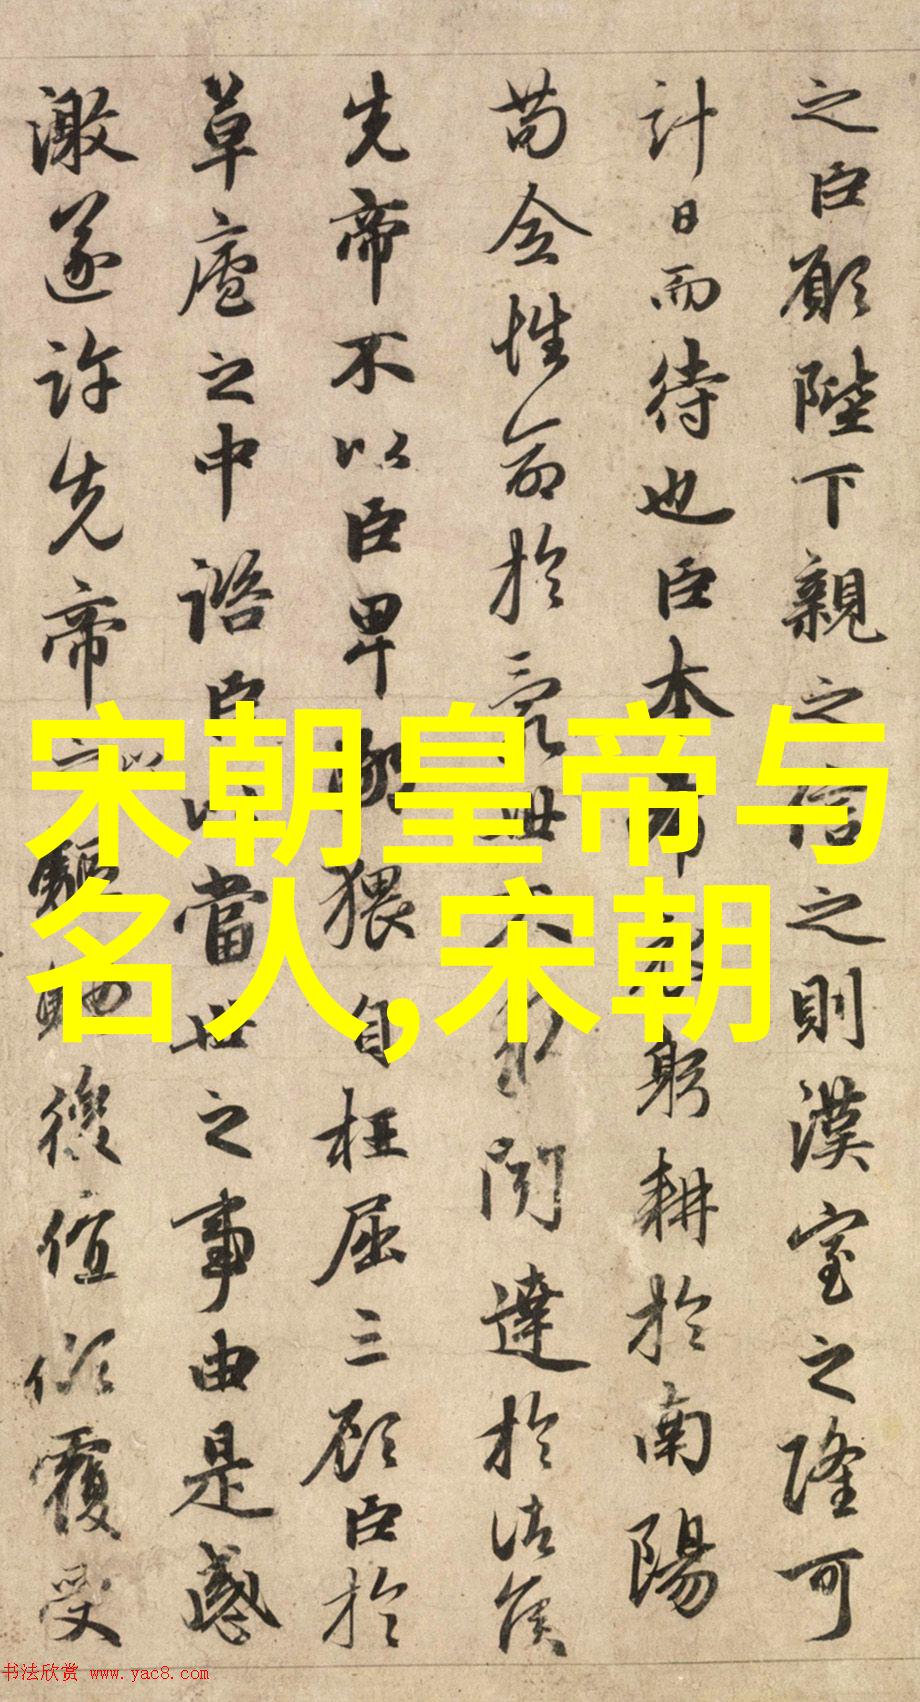 之臣願陛下親之信之則漢室之隆可
計日而待也臣本布衣躬耕於南陽
苟全性命於亂世不求聞達於諸侯
先帝不以臣卑鄙猥自枉屈三顧臣於
草廬之中諮臣以當世之事由是感
激遂許先帝以驅馳後值傾覆受
宋朝皇帝与
名人,宋朝
书法欣赏 www.yac8.com